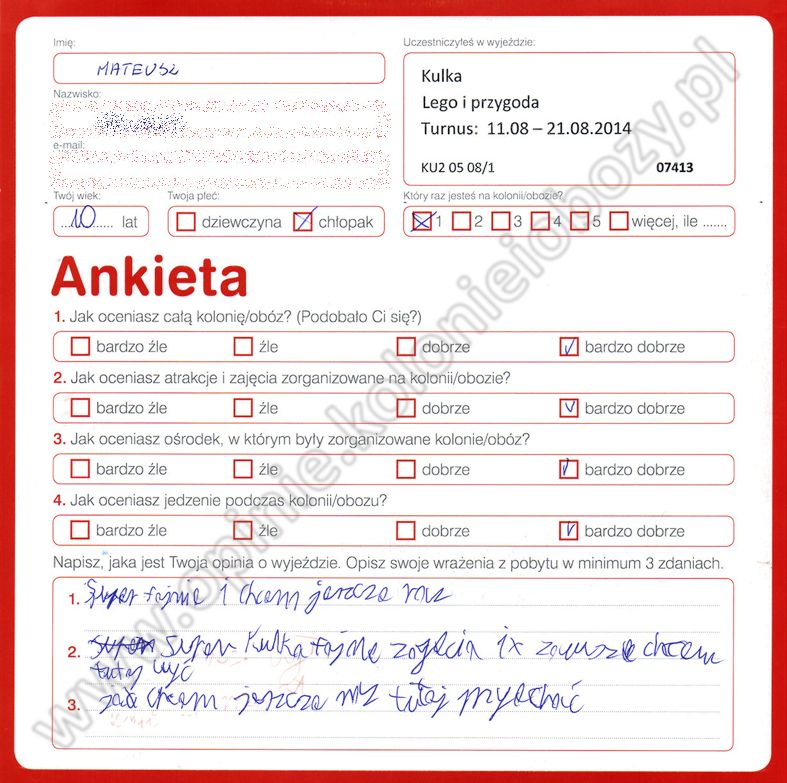 Imię:
MATEUSZ
Nazwisko:
e-mail:
Twój wiek:
10 lat
Twoja płeć:
dziewczyna chłopak
Uczestniczyłeś w wyjeździe:
Kulka
Lego i przygoda
Turnus: 11.08 – 21.08.2014
KU2 05 08/1 07413
Który raz jesteś na kolonii/obozie?
1 2 3 4 5 więcej, ile .......
Ankieta
1. Jak oceniasz całą kolonię/obóz? (Podobało Ci się?)
bardzo źle źle dobrze bardzo dobrze
2. Jak oceniasz atrakcje i zajęcia zorganizowane na kolonii/obozie?
bardzo źle źle dobrze bardzo dobrze
3. Jak oceniasz ośrodek, w którym były zorganizowane kolonie/obóz?
bardzo źle źle dobrze bardzo dobrze
4. Jak oceniasz jedzenie podczas kolonii/obozu?
bardzo źle źle dobrze bardzo dobrze
Napisz, jaka jest Twoja opinia o wyjeździe. Opisz swoje wrażenia z pobytu w minimum 3 zdaniach.
1. Super fajnie i chcem jeszcze raz
2. Super Kulka fajne zajęcia i zawsze chcem
tutaj być
3. chcem jeszcze raz tutaj przyjechać
www.opinie.kolonieiobozy.pl